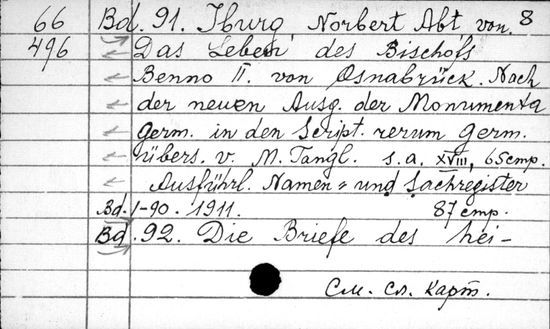 66 Bd. 91. Iburg, Norbert Abt von. 8
496 Das Leben des Bischofs
Benno II. von Osnabrück. Nach
der neuen Ausg. der Monumenta
Germ. in den Script. rerum Germ.
übers. v. M. Tangl. s.a. XVIII, 65 стр.
Ausführl. Namen- und Sachregister
Bd. 1-90. 1911. 87 стр.
Bd. 92. Die Briefe des hei-
См. сл. карт.